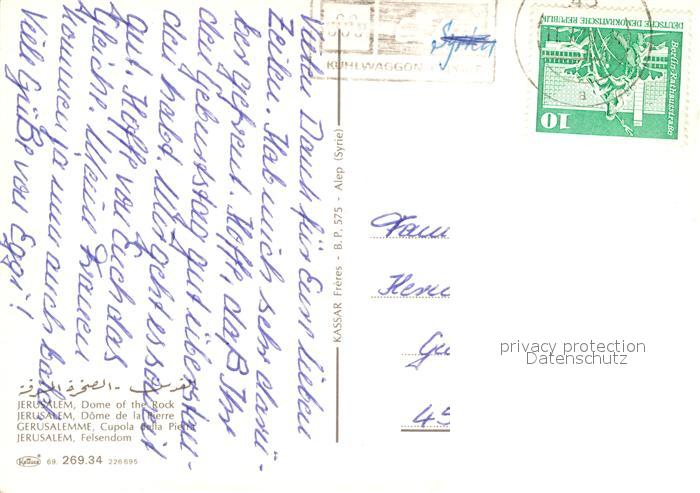 Vielen Dank für Eure lieben
Zeilen. Hab mich sehr darü-
ber gefreut. Hoffe, daß Ihr
den Geburtstag gut überstan-
den habt. Mir geht es soweit
gut. Hoffe von Euch das
Gleiche. Meine Frauen
kommen ja nun auch bald
Viele Grüße von Eggi!
القدس - الصخرة المشرفة
JERUSALEM, Dome of the Rock
JERUSALEM, Dôme de la Pierre
GERUSALEMME, Cupola della Pietra
JERUSALEM, Felsendom
69. 269.34 226695
KASSAR Frères - B.P. 575 - Alep (Syrie)
KÜHLWAGGON
Syrien
DEUTSCHE DEMOKRATISCHE REPUBLIK
Berlin, Rathausstraße
10
45
Fam
45
privacy protection
Datenschutz